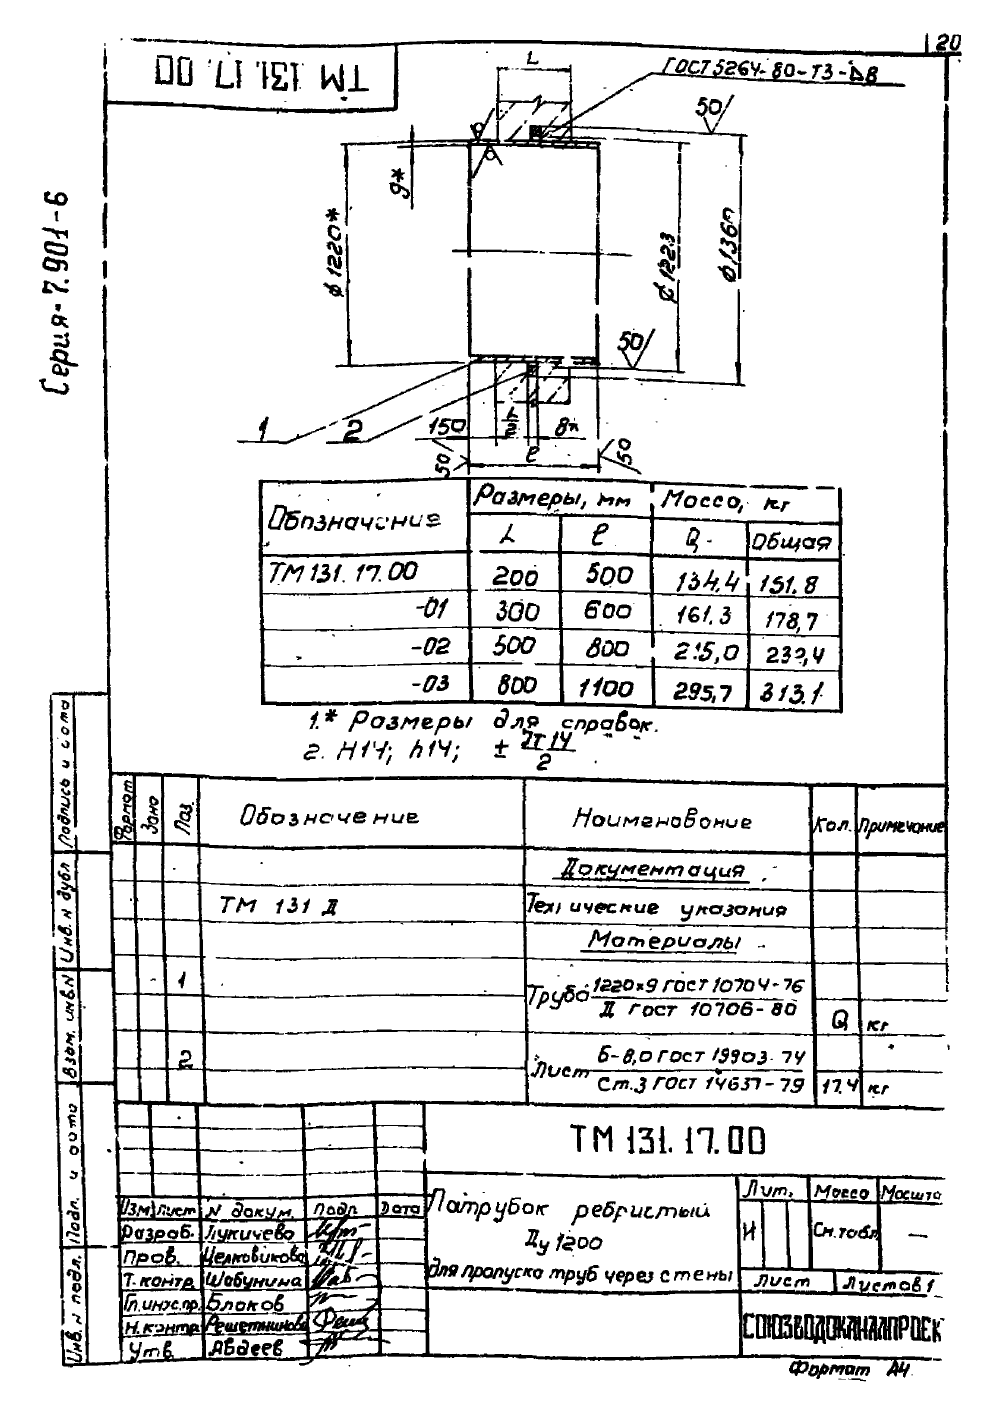 20
ТМ 131.17.00
Серия 7.901-6
L
ГОСТ 5264-80-Т3-ΔВ
50
9*
ф1220*
ф1223
ф1360
50
1
2
150
L/2
8*
50
ℓ
50
Обозначение Размеры, мм Масса, кг
L ℓ Q Общая
ТМ 131.17.00 200 500 134,4 151,8
-01 300 600 161,3 178,7
-02 500 800 215,0 232,4
-03 800 1100 295,7 313,1
1.* Размеры для справок.
2. H14; h14; ± IT14/2
Формат Зона Поз. Обозначение Наименование Кол. Примечание
Документация
ТМ 131 Д Технические указания
Материалы
1 Труба 1220×9 ГОСТ 10704-76
Д ГОСТ 10706-80 Q кг
2 Лист Б-8,0 ГОСТ 19903-74
Ст.3 ГОСТ 14637-79 17,4 кг
ТМ 131.17.00
Изм Лист N докум. Подп. Дата
Разраб. Лукичева
Пров. Целковикова
Т.контр. Шабунина
Гл.инж.пр. Блоков
Н.контр. Решетникова
Утв. Авдеев
Патрубок ребристый
Ду 1200
для пропуска труб через стены
Лит. Масса Масштаб
И См.табл. —
Лист Листов 1
СОЮЗВОДОКАНАЛПРОЕК
Формат А4
Подпись и дата
Инв. N дубл.
Взам. инв. N
Подп. и дата
Инв. N подл.